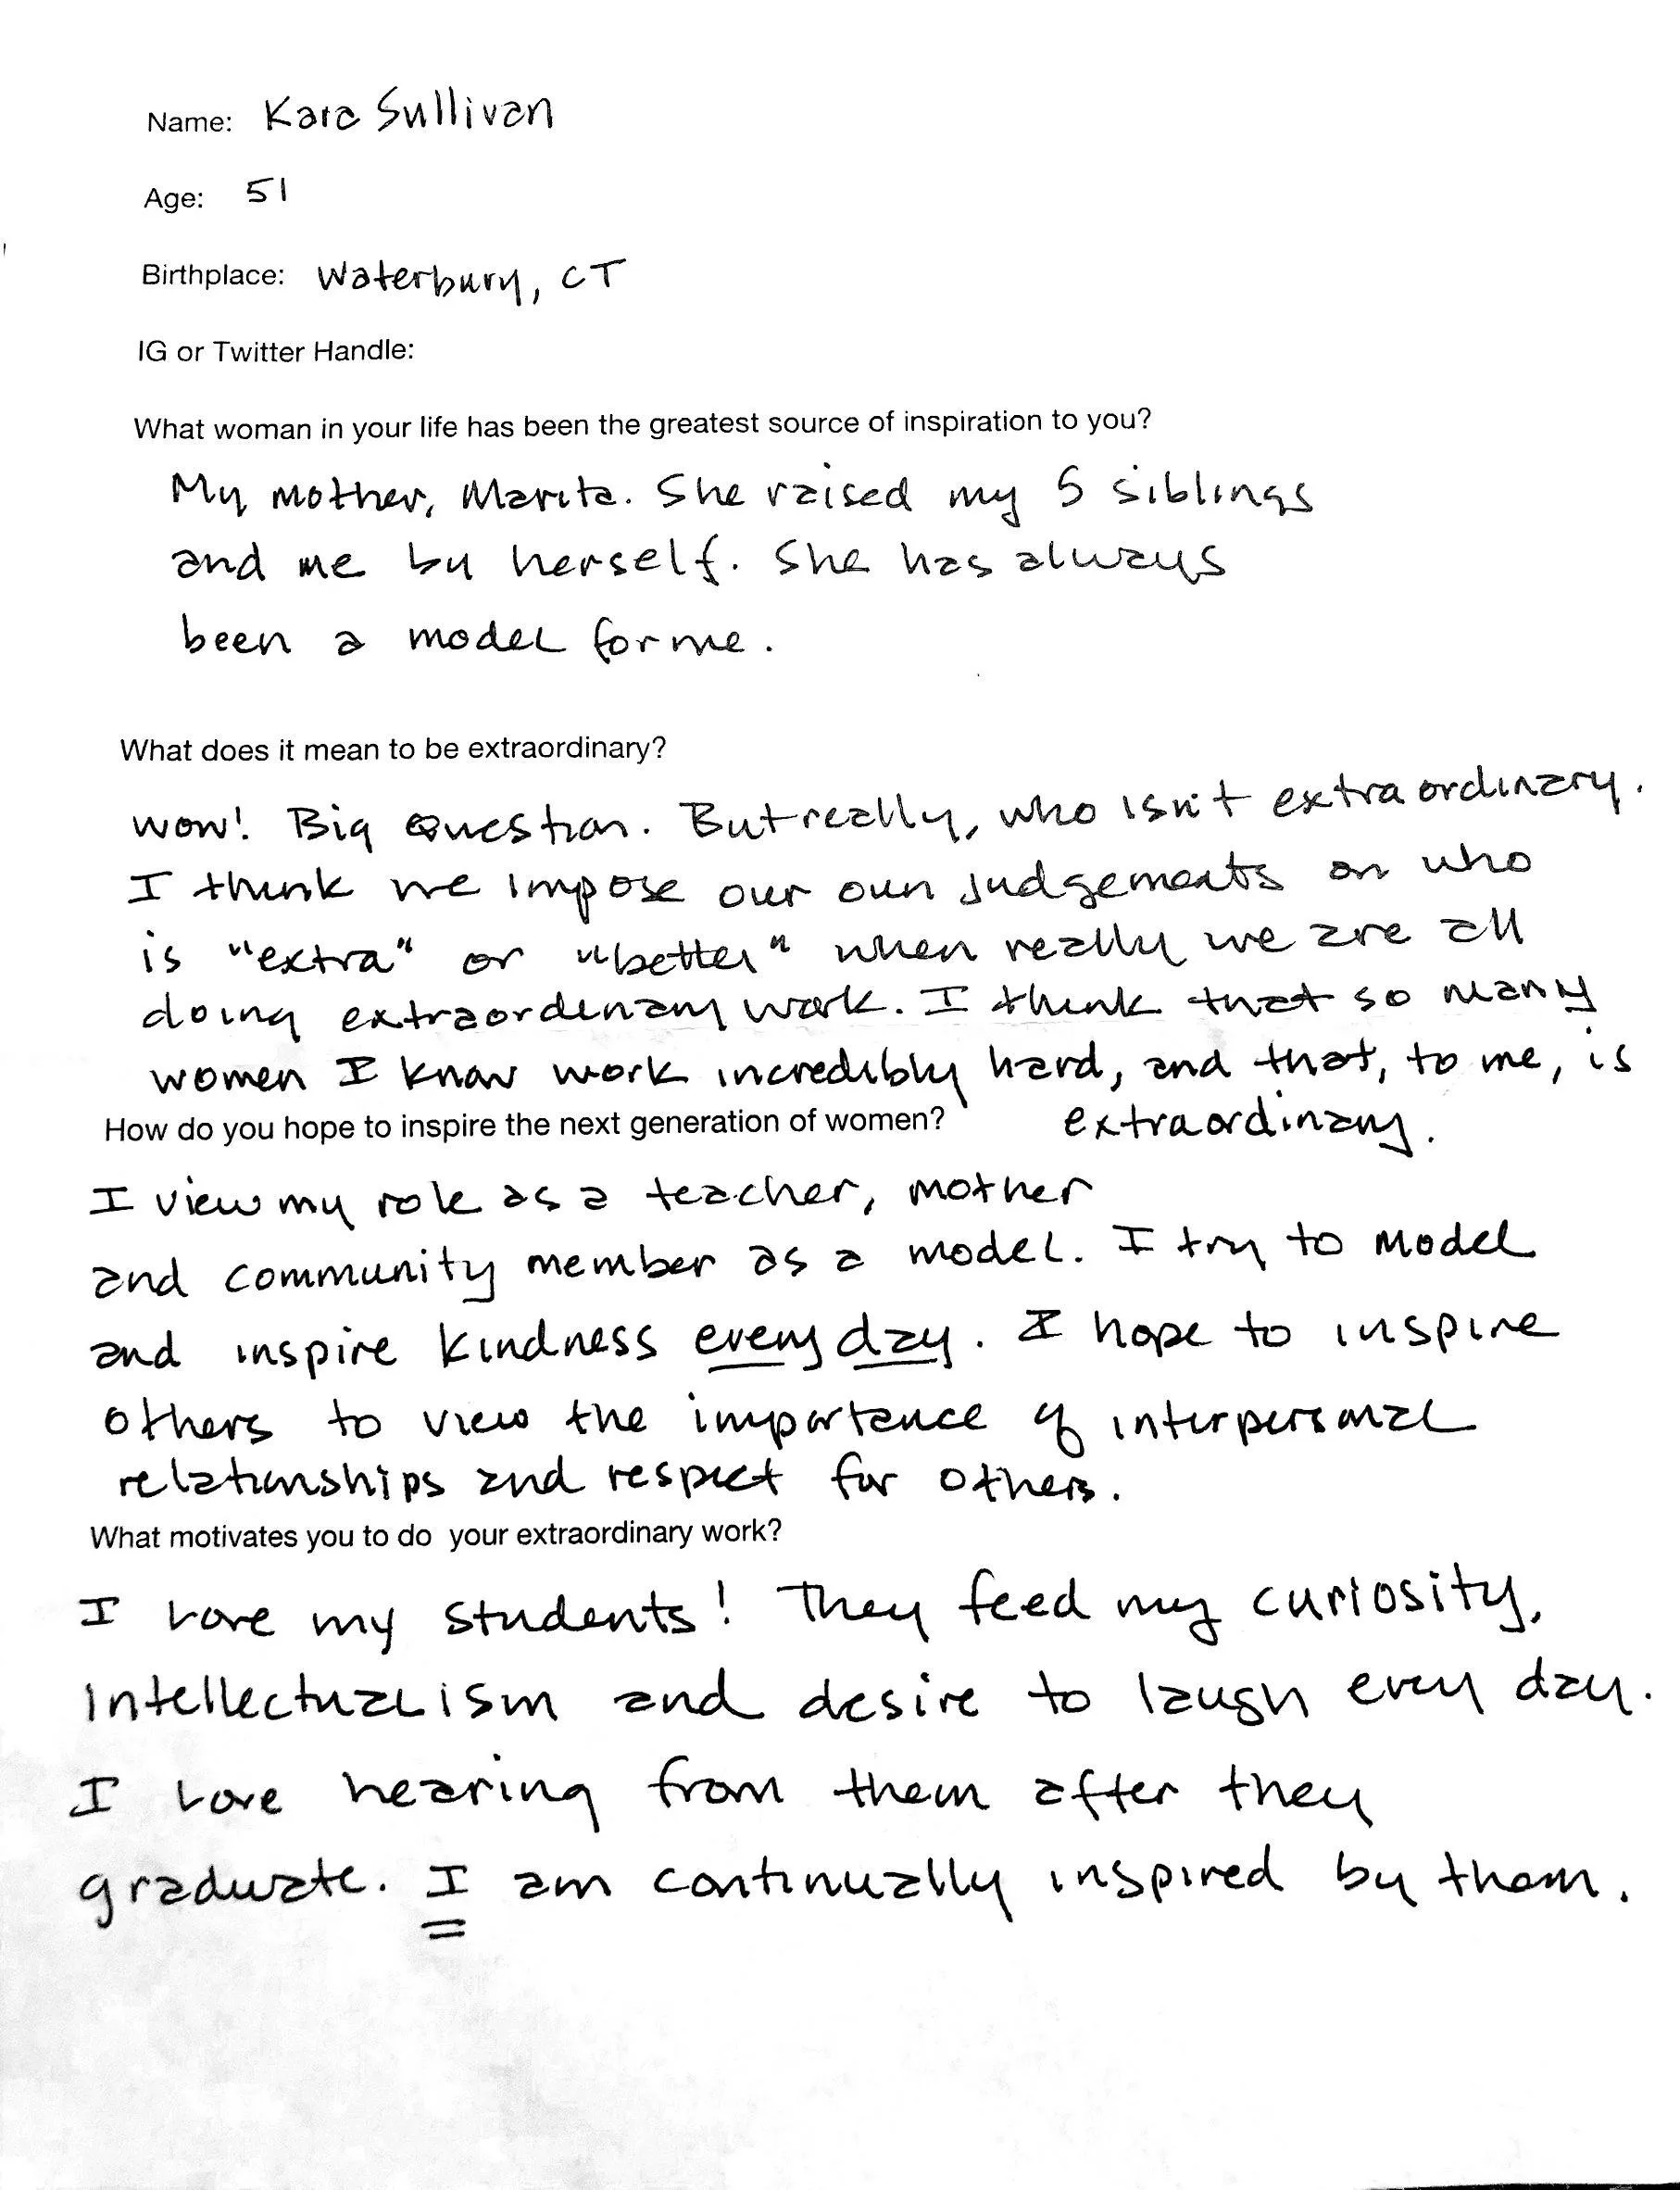 Name: Kara Sullivan
Age: 51
Birthplace: Waterbury, CT
IG or Twitter Handle:
What woman in your life has been the greatest source of inspiration to you?
My mother, Marita. She raised my 5 siblings
and me by herself. She has always
been a model for me.
What does it mean to be extraordinary?
Wow! Big Question. But really, who isn't extraordinary.
I think we impose our own judgements on who
is "extra" or "better" when really we are all
doing extraordinary work. I think that so many
women I know work incredibly hard, and that, to me, is
extraordinary.
How do you hope to inspire the next generation of women?
I view my role as a teacher, mother
and community member as a model. I try to model
and inspire kindness every day. I hope to inspire
others to view the importance of interpersonal
relationships and respect for others.
What motivates you to do your extraordinary work?
I love my students! They feed my curiosity,
intellectualism and desire to laugh every day.
I love hearing from them after they
graduate. I am continually inspired by them.